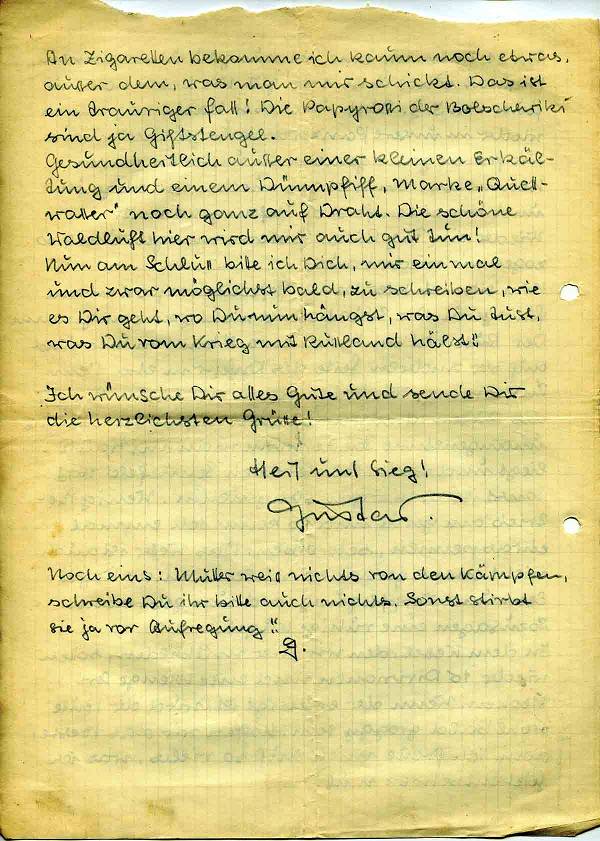 An Zigaretten bekomme ich kaum noch etwas,
außer dem, was man mir schickt. Das ist
ein trauriger Fall! Die Papyrossi der Bolschewiki
sind ja Giftstengel.
Gesundheitlich außer einer kleinen Erkäl-
tung und einem Dünnpfiff, Marke „Quell-
wasser" noch ganz auf Draht. Die schöne
Waldluft hier wird mir auch gut tun!
Nun am Schluß bitte ich Dich, mir einmal
und zwar möglichst bald, zu schreiben, wie
es Dir geht, wo Du nun hängst, was Du tust,
was Du vom Krieg mit Rußland hälst!!
Ich wünsche Dir alles Gute und sende Dir
die herzlichsten Grüße!
Heil und Sieg!
Gustav.
Noch eins: Mutter weiß nichts von den Kämpfen,
schreibe Du ihr bitte auch nichts. Sonst stirbt
sie ja vor Aufregung!!
G.